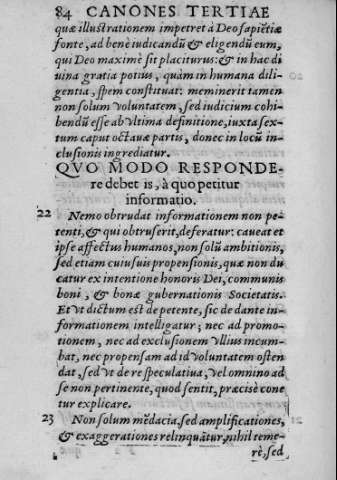 84 CANONES TERTIAE
quæ illustrationem impetret à Deo sapiẽtiæ
fonte, ad benè iudicandũ & eligendũ eum,
qui Deo maximè sit placiturus: & in hac di
uina gratia potius, quàm in humana dili-
gentia, spem constituat: meminerit tamen
non solum voluntatem, sed iudicium cohi-
bendũ esse ab vltima definitione, iuxta sex-
tum caput octauæ partis, donec in locũ in-
clusionis ingrediatur.
QVO MODO RESPONDE-
re debet is, à quo petitur
informatio.
22 Nemo obtrudat informationem non pe-
tenti, & qui obtruserit, deferatur: caueat et
ipse affectus humanos, non solũ ambitionis,
sed etiam cuiusuis propensionis, quæ non du
catur ex intentione honoris Dei, communis
boni, & bonæ gubernationis Societatis.
Et vt dictum est de petente, sic de dante in-
formationem intelligatur; nec ad promo-
tionem, nec ad exclusionem vllius incum-
bat, nec propensam ad id voluntatem osten
dat, sed vt de re speculatiua, vel omnino ad
se non pertinente, quod sentit, præcisè cone
tur explicare.
23 Non solum mẽdacia, sed amplificationes,
& exaggerationes relinquãtur, nihil teme-
rè, sed